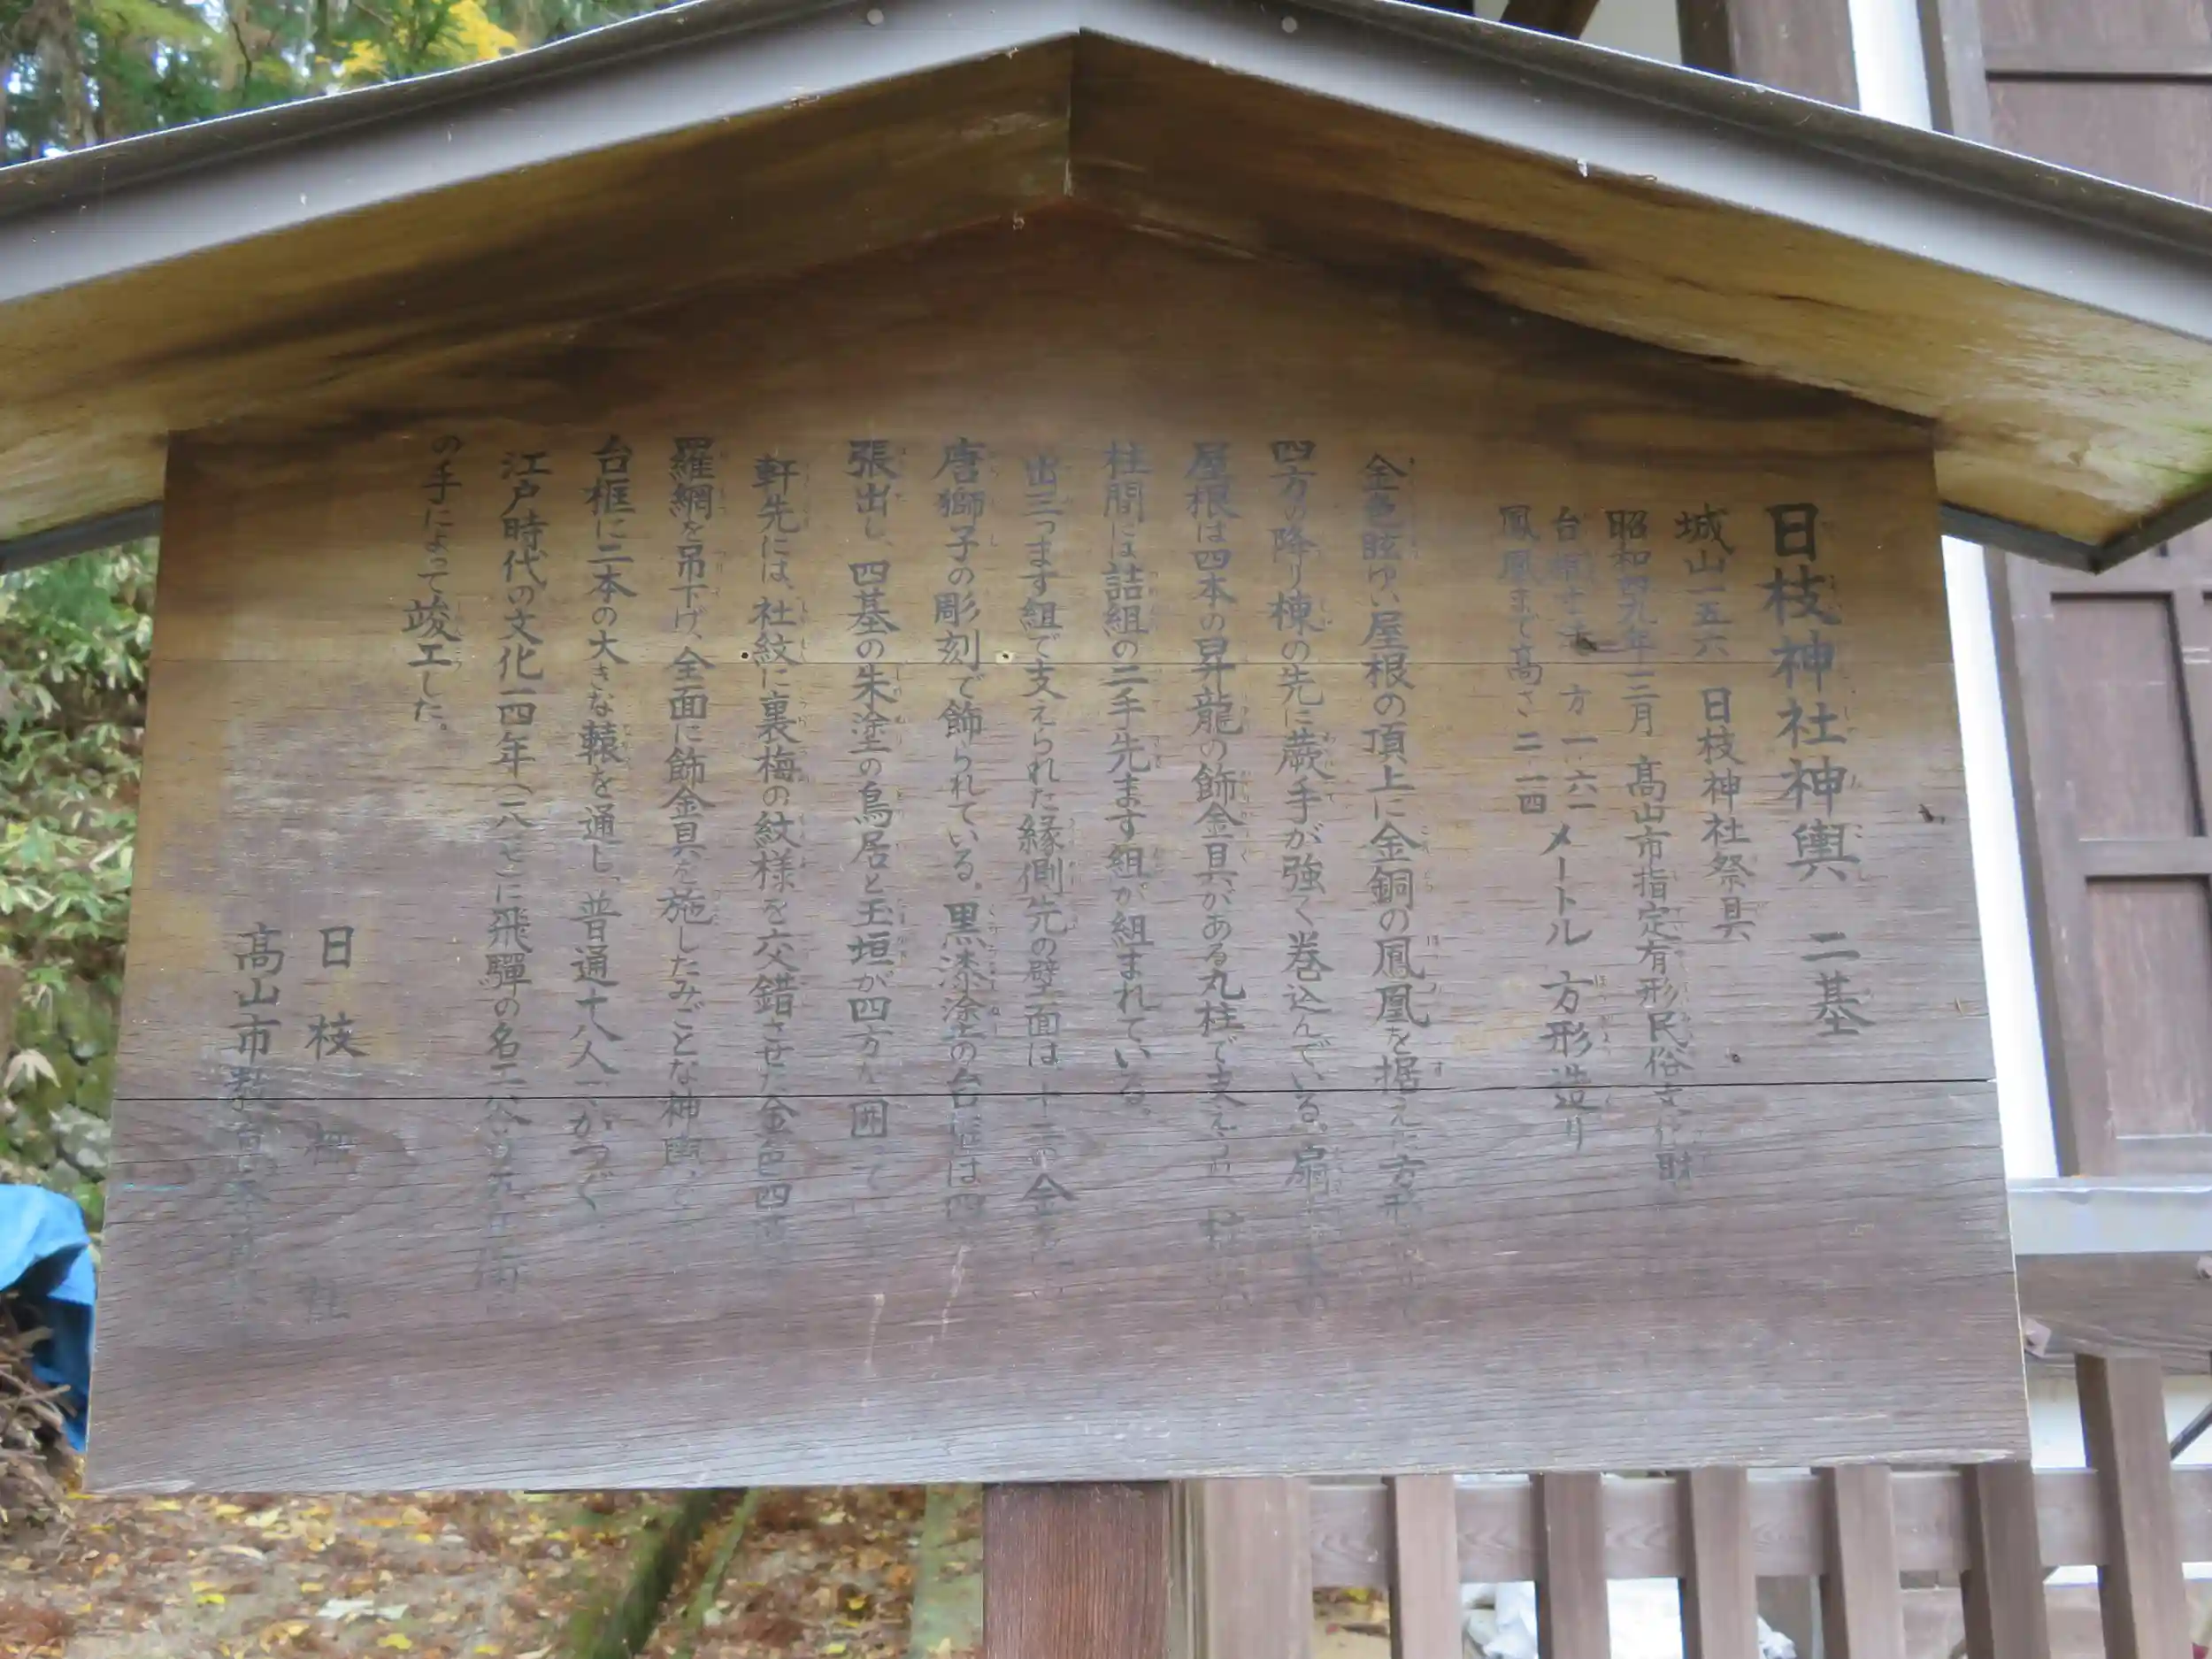 日枝神社神輿 二基
城山一五六 日枝神社祭具
昭和四九年三月 高山市指定有形民俗文化財
方一・六一メートル 方形造り
鳳凰まで高さ二・一四
金色眩ゆい屋根の頂上に金銅の鳳凰を据えた方形
四方の降り棟の先に蕨手が強く巻込んでいる。扇
屋根は四本の昇龍の飾金具がある丸柱で支えられ、
柱間には詰組の三手先ます組が組まれている。
出三つます組で支えられた縁側先の壁面は 金
唐獅子の彫刻で飾られている。黒漆塗の台 は四
張出し、四基の朱塗の鳥居と玉垣が四方を囲って
軒先には、社紋に裏梅の紋様を交錯させた金色四
羅網を吊下げ、全面に飾金具を施したみごとな神輿で
台框に二本の大きな轅を通し、普通十八人でかつぐ
江戸時代の文化一四年(一八一七)に飛驒の名工
の手によって竣工した。
日枝神社
高山市教育委員会